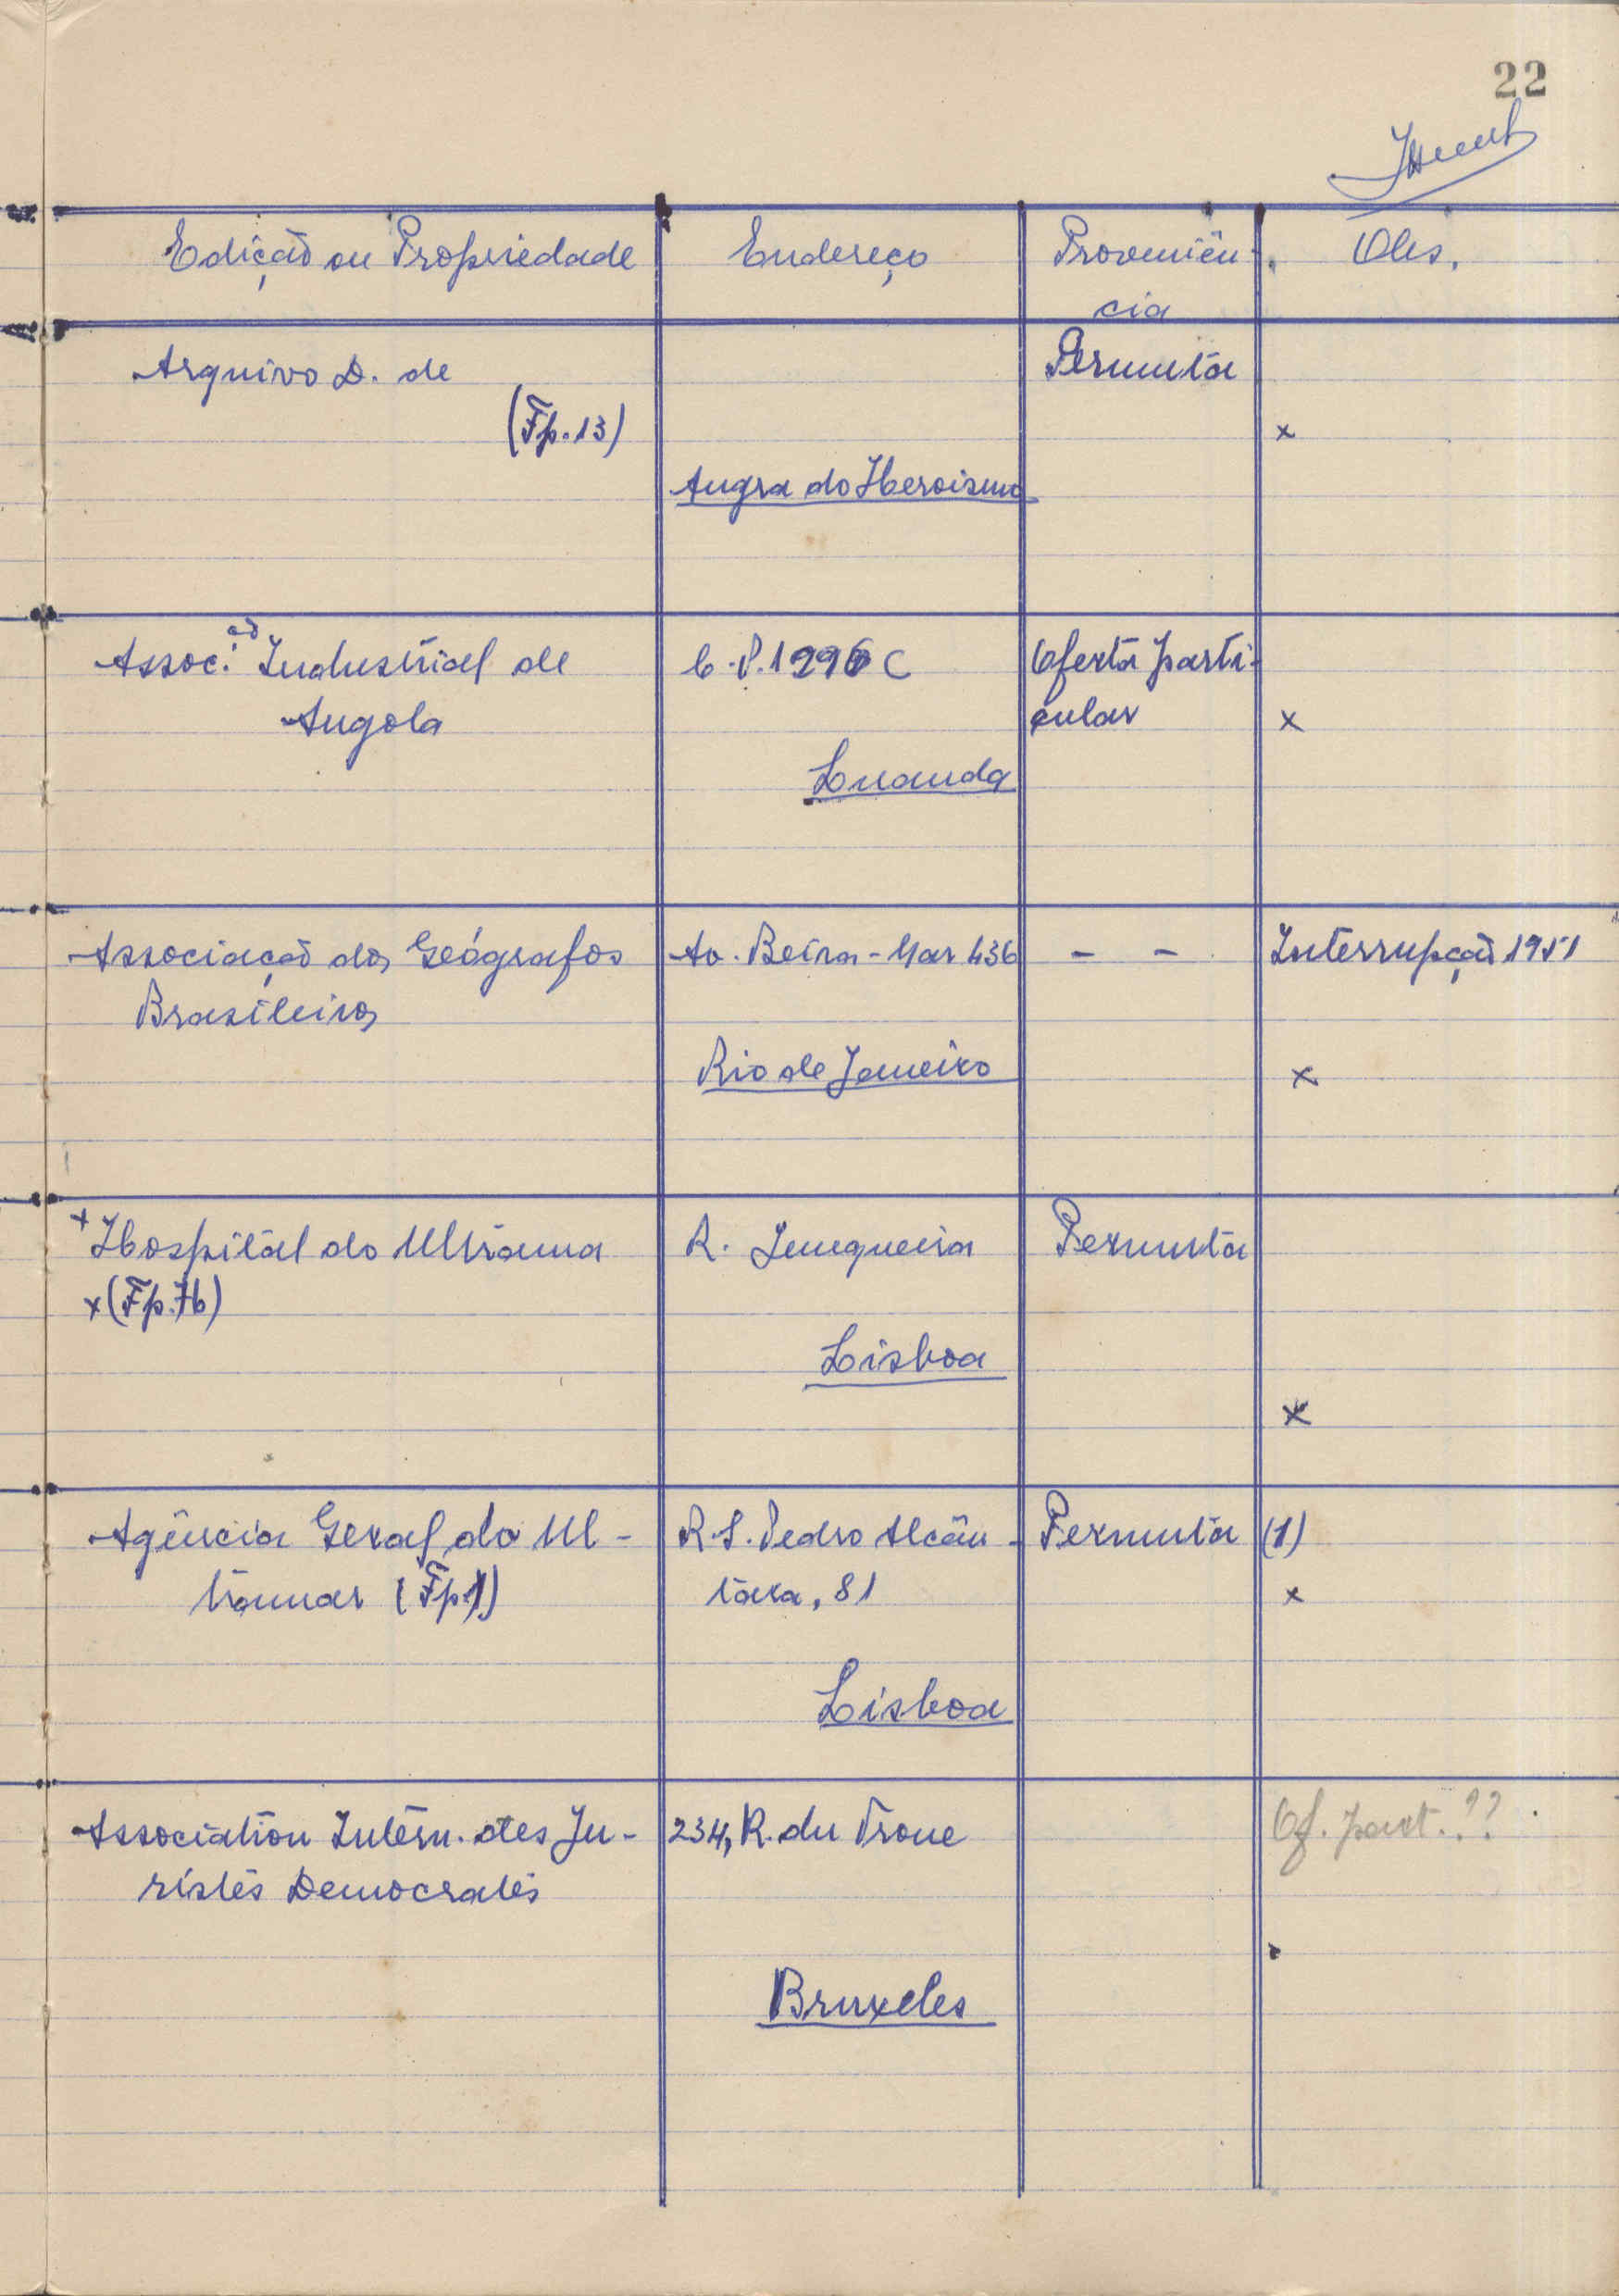 22
Edição ou Propriedade Endereço Proveniên- Obs.
cia
Arquivo D. de Permuta
(Fp.13) x
Angra do Heroismo
Assoc.ão Industrial de C.P. 1296 C Oferta parti-
Angola cular x
Luanda
Associação dos Geógrafos Av. Beira-Mar 436 - - Interrupção 1951
Brasileiros
Rio de Janeiro x
x Hospital do Ultrama R. Junqueira Permuta
x (Fp.76)
Lisboa
x
Agência Geral do Ul- R. S. Pedro Alcân- Permuta (1)
tramar (Fp.1) tara, 81 x
Lisboa
Association Intern. des Ju- 234, R. du Trone Of. part. ??
ristes Democrates
Bruxeles